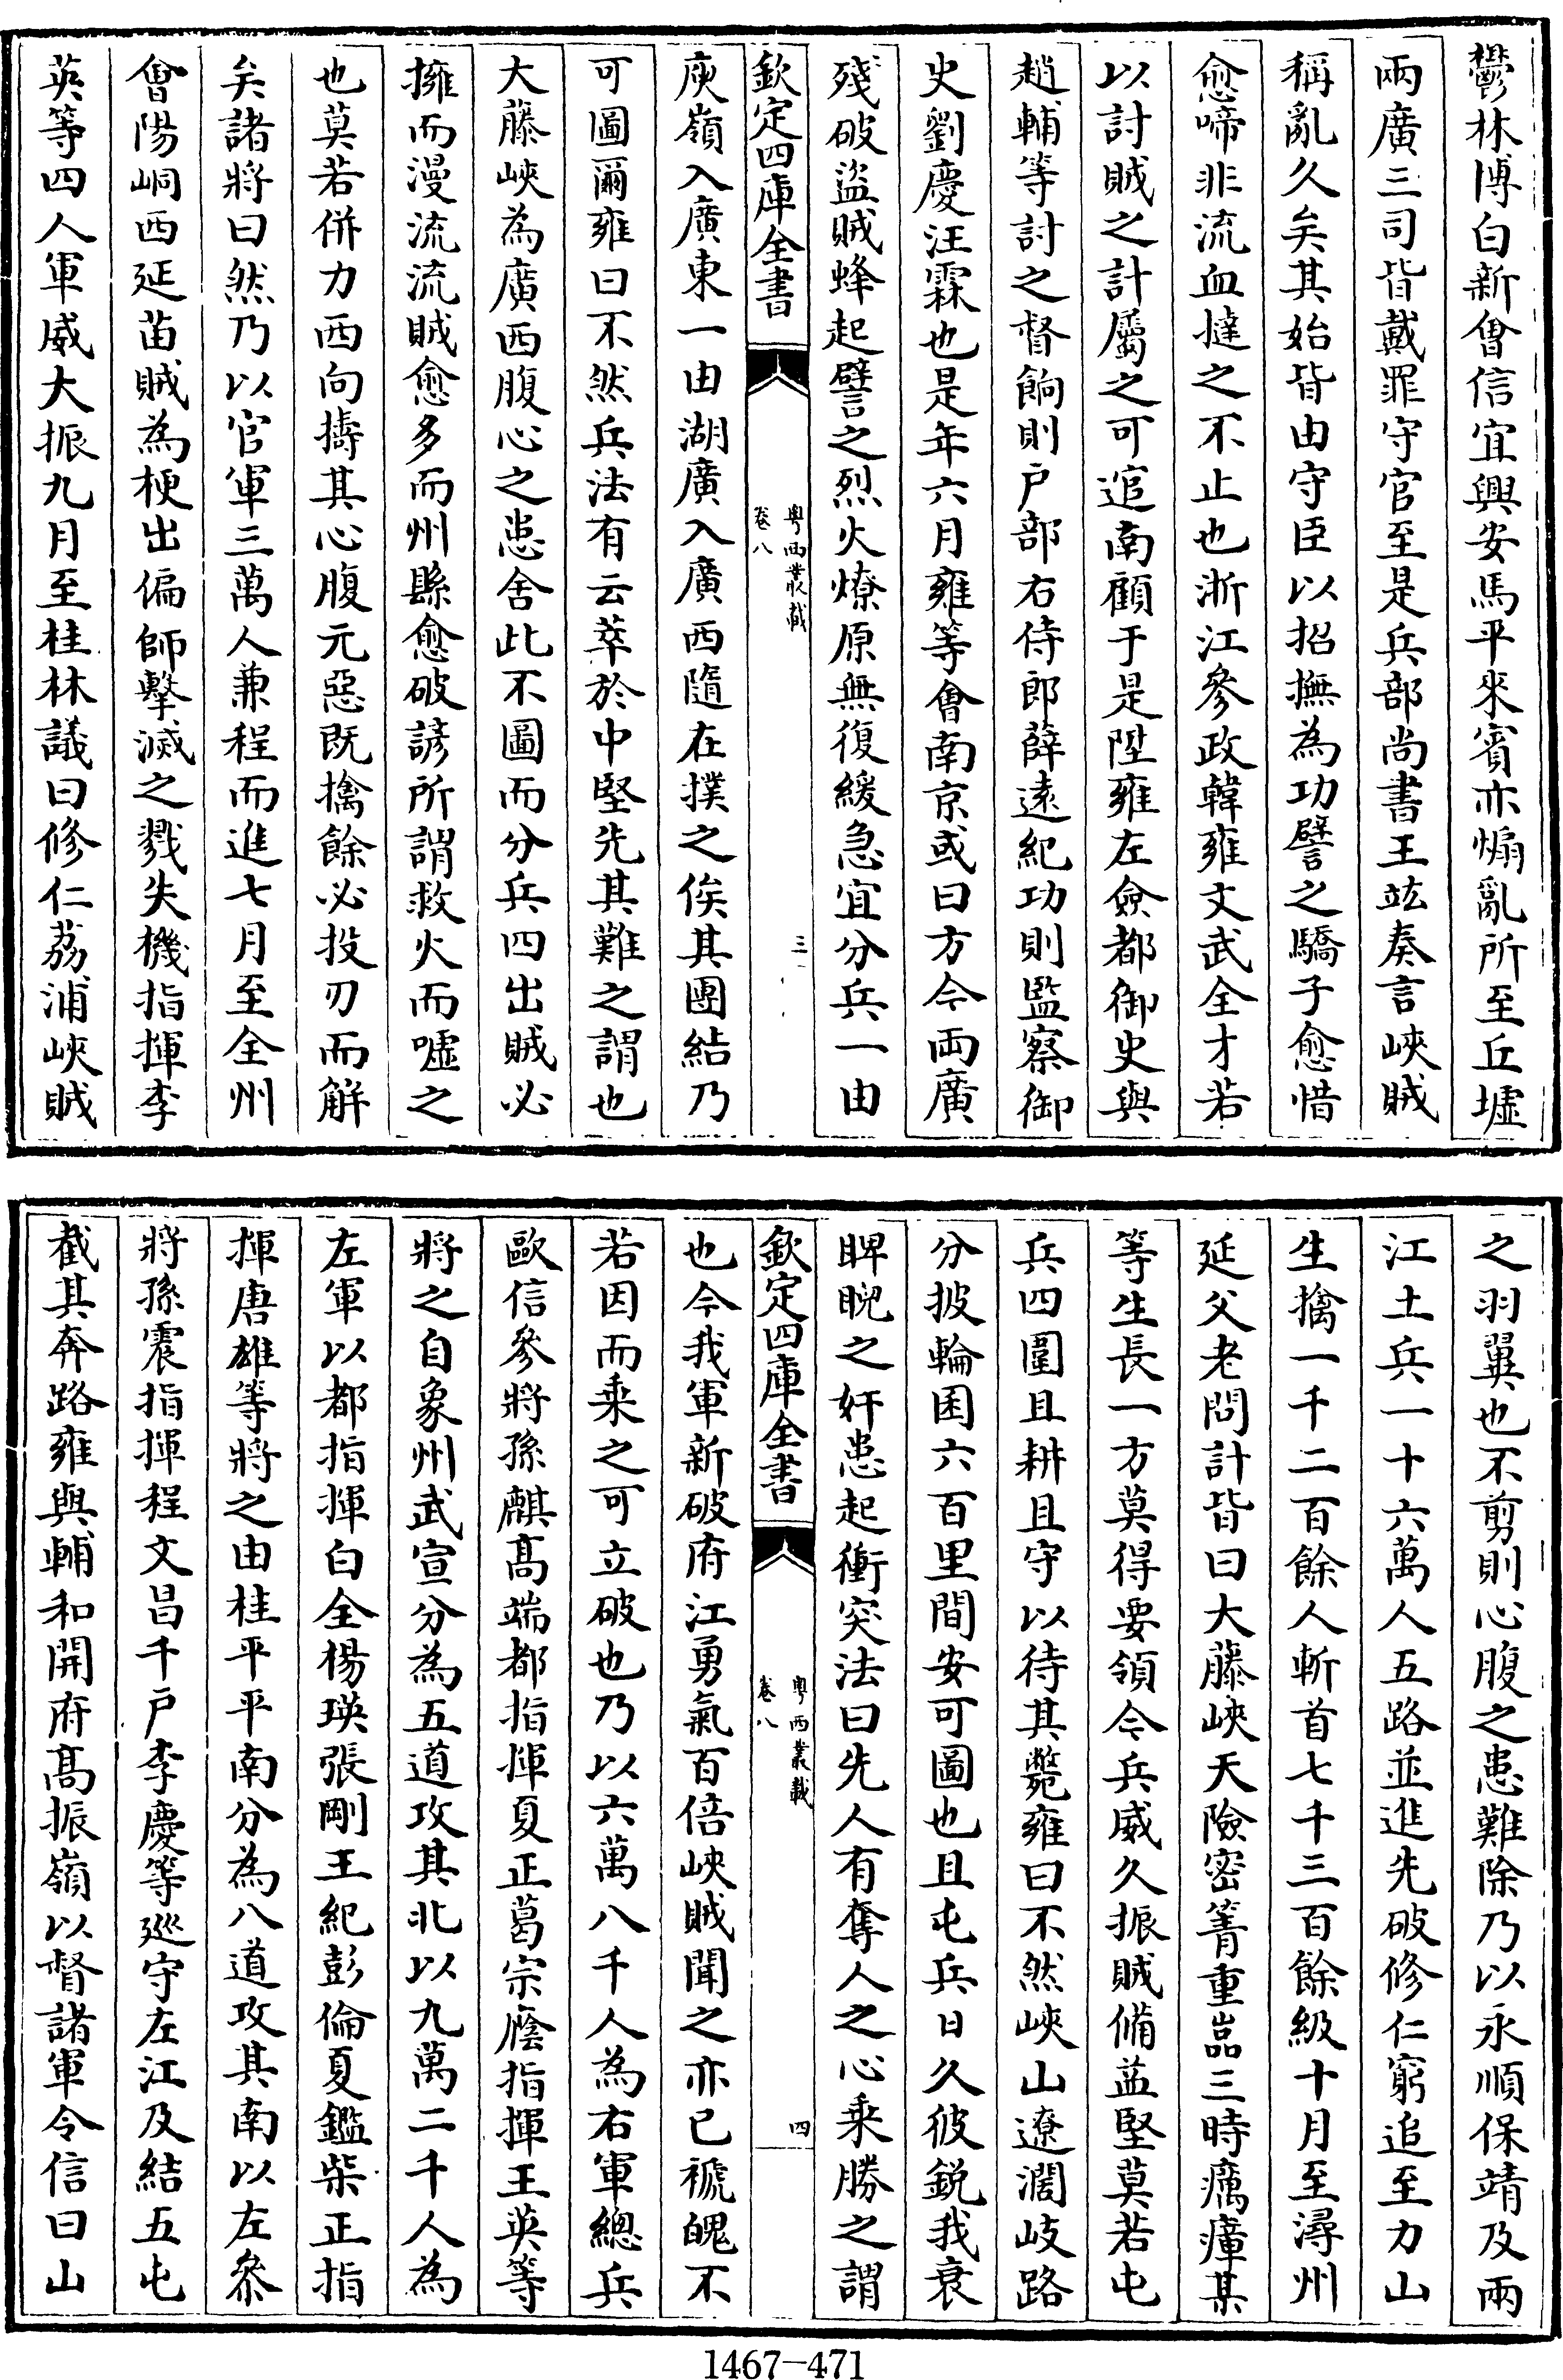 鬱林博白新會信宜興安馬平來賓亦煽亂所至丘墟
兩廣三司皆戴罪守官至是兵部尚書王竑奏言峽賊
稱亂久矣其始皆由守臣以招撫為功譬之驕子愈惜
愈啼非流血撻之不止也浙江參政韓雍文武全才若
以討賊之計屬之可逭南顧于是陞雍左僉都御史與
趙輔等討之督餉則户部右侍郎薛遠紀功則監察御
史劉慶汪霖也是年六月雍等會南京或曰方今兩廣
殘破盜賊蜂起譬之烈火燎原無復緩急宜分兵一由
欽定四庫全書
粵西叢載
卷八
三
庾嶺入廣東一由湖廣入廣西隨在撲之俟其團結乃
可圖爾雍曰不然兵法有云萃於中堅先其難之謂也
大藤峽為廣西腹心之患舍此不圖而分兵四出賊必
擁而漫流流賊愈多而州縣愈破諺所謂救火而噓之
也莫若併力西向擣其心腹元惡既擒餘必投刃而解
矣諸將曰然乃以官軍三萬人兼程而進七月至全州
會陽峒西延苗賊為梗出偏師擊滅之戮失機指揮李
英等四人軍威大振九月至桂林議曰修仁荔浦峽賊
之羽翼也不剪則心腹之患難除乃以永順保靖及兩
江土兵一十六萬人五路並進先破修仁窮追至力山
生擒一千二百餘人斬首七千三百餘級十月至潯州
延父老問計皆曰大藤峽天險密箐重嵓三時癘瘴某
等生長一方莫得要領今兵威久振賊備益堅莫若屯
兵四圍且耕且守以待其斃雍曰不然峽山遼濶岐路
分披輪囷六百里間安可圖也且屯兵日久彼銳我衰
睥睨之奸患起衝突法曰先人有奪人之心乘勝之謂
欽定四庫全書
粵西叢載
卷八
四
也今我軍新破府江勇氣百倍峽賊聞之亦已褫魄不
若因而乘之可立破也乃以六萬八千人為右軍總兵
歐信參將孫麒髙端都指揮夏正葛宗廕指揮王英等
將之自象州武宣分為五道攻其北以九萬二千人為
左軍以都指揮白全楊瑛張剛王紀彭倫夏鑑柴正指
揮唐雄等將之由桂平平南分為八道攻其南以左參
將孫震指揮程文昌千户李慶等廵守左江及結五屯
截其奔路雍與輔和開府髙振嶺以督諸軍令信曰山
1467-471